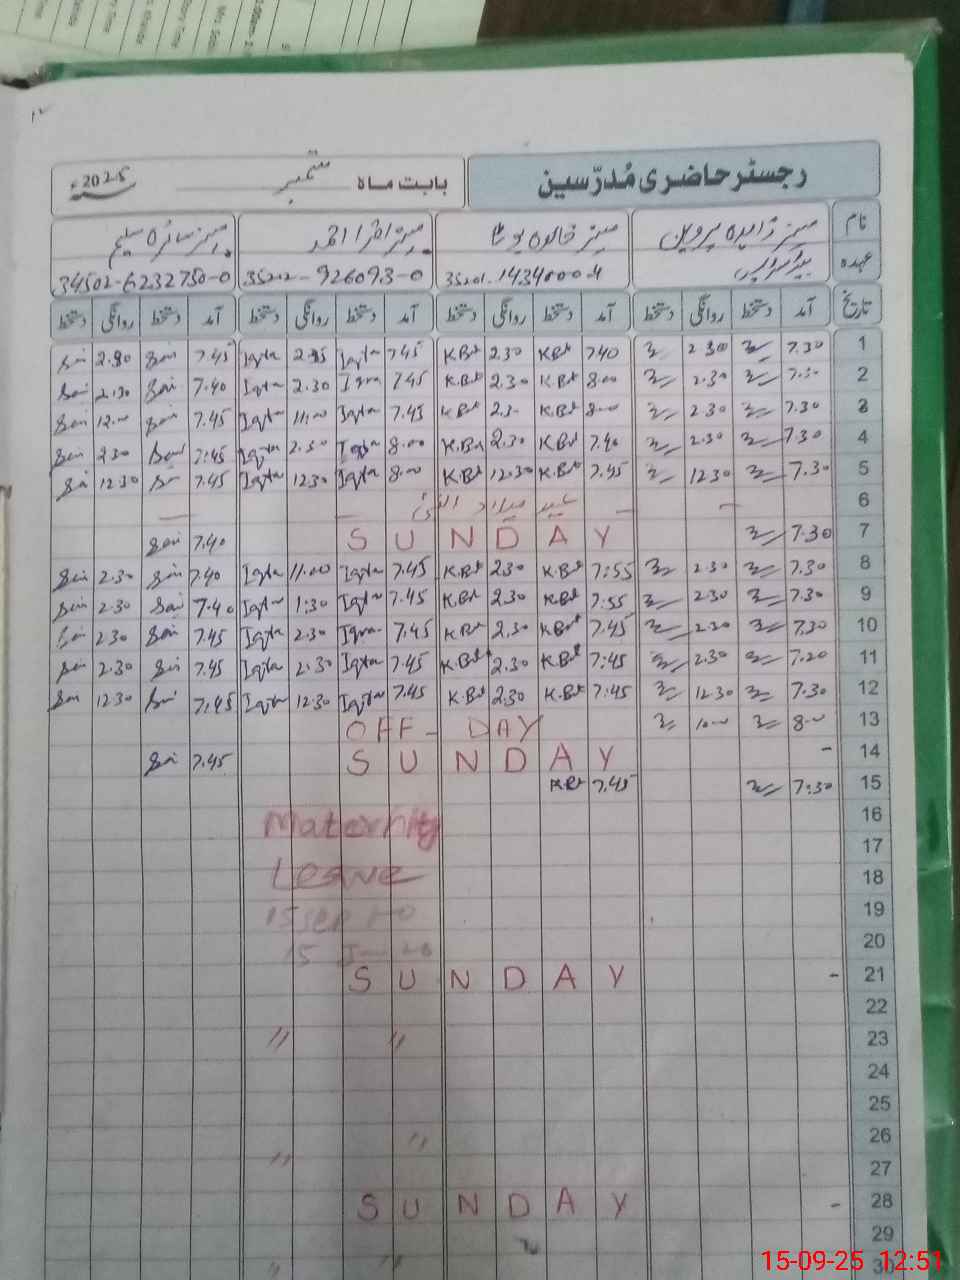 رجسٹر حاضری مُدرّسین
بابت ماہ ستمبر 2025ء
نام مسز زاہدہ پروین مسز خالدہ بوٹا مسز اقرا احمد مسز سائرہ سلیم
عہدہ 35201-1434000-4 35202-926093-0 34502-6232750-0
تاریخ آمد دستخط روانگی دستخط آمد دستخط روانگی دستخط آمد دستخط روانگی دستخط آمد دستخط روانگی دستخط
1 7.30 2.30 7.40 K.Bt 2.30 K.Bt 7.45 Iqra 2.35 Iqra 7.45 Sai 2.30 Sai
2 7.30 2.30 8.00 K.Bt 2.30 K.Bt 7.45 Iqra 2.30 Iqra 7.40 Sai 2.30 Sai
3 7.30 2.30 8.00 K.Bt 2.30 K.Bt 7.45 Iqra 11.00 Iqra 7.45 Sai 12.00 Sai
4 7.30 2.30 7.40 K.Bt 2.30 K.Bt 8.00 Iqra 2.30 Iqra 7.45 Sai 2.30 Sai
5 7.30 12.30 7.45 K.Bt 12.30 K.Bt 8.00 Iqra 12.30 Iqra 7.45 Sai 12.30 Sai
6 عید میلاد النبیؐ
7 7.30 SUNDAY 7.40 Sai
8 7.30 2.30 7:55 K.Bt 2.30 K.Bt 7.45 Iqra 11.00 Iqra 7.40 Sai 2.30 Sai
9 7.30 2.30 7:55 K.Bt 2.30 K.Bt 7.45 Iqra 1:30 Iqra 7.40 Sai 2.30 Sai
10 7.30 2.30 7.45 K.Bt 2.30 K.Bt 7.45 Iqra 2.30 Iqra 7.45 Sai 2.30 Sai
11 7.20 2.30 7:45 K.Bt 2.30 K.Bt 7.45 Iqra 2.30 Iqra 7.45 Sai 2.30 Sai
12 7.30 12.30 7:45 K.Bt 2.30 K.Bt 7.45 Iqra 12.30 Iqra 7.45 Sai 12.30 Sai
13 8.00 10.00 OFF - DAY
14 - SUNDAY 7.45 Sai
15 7:30 7.45 K.Bt
16 Maternity
17
18 Leave
19 15 Sep to
20 15
21 - SUNDAY
22
23 〃 〃
24
25
26 〃
27 〃
28 - SUNDAY
29
30 〃 〃
15-09-25 12:51